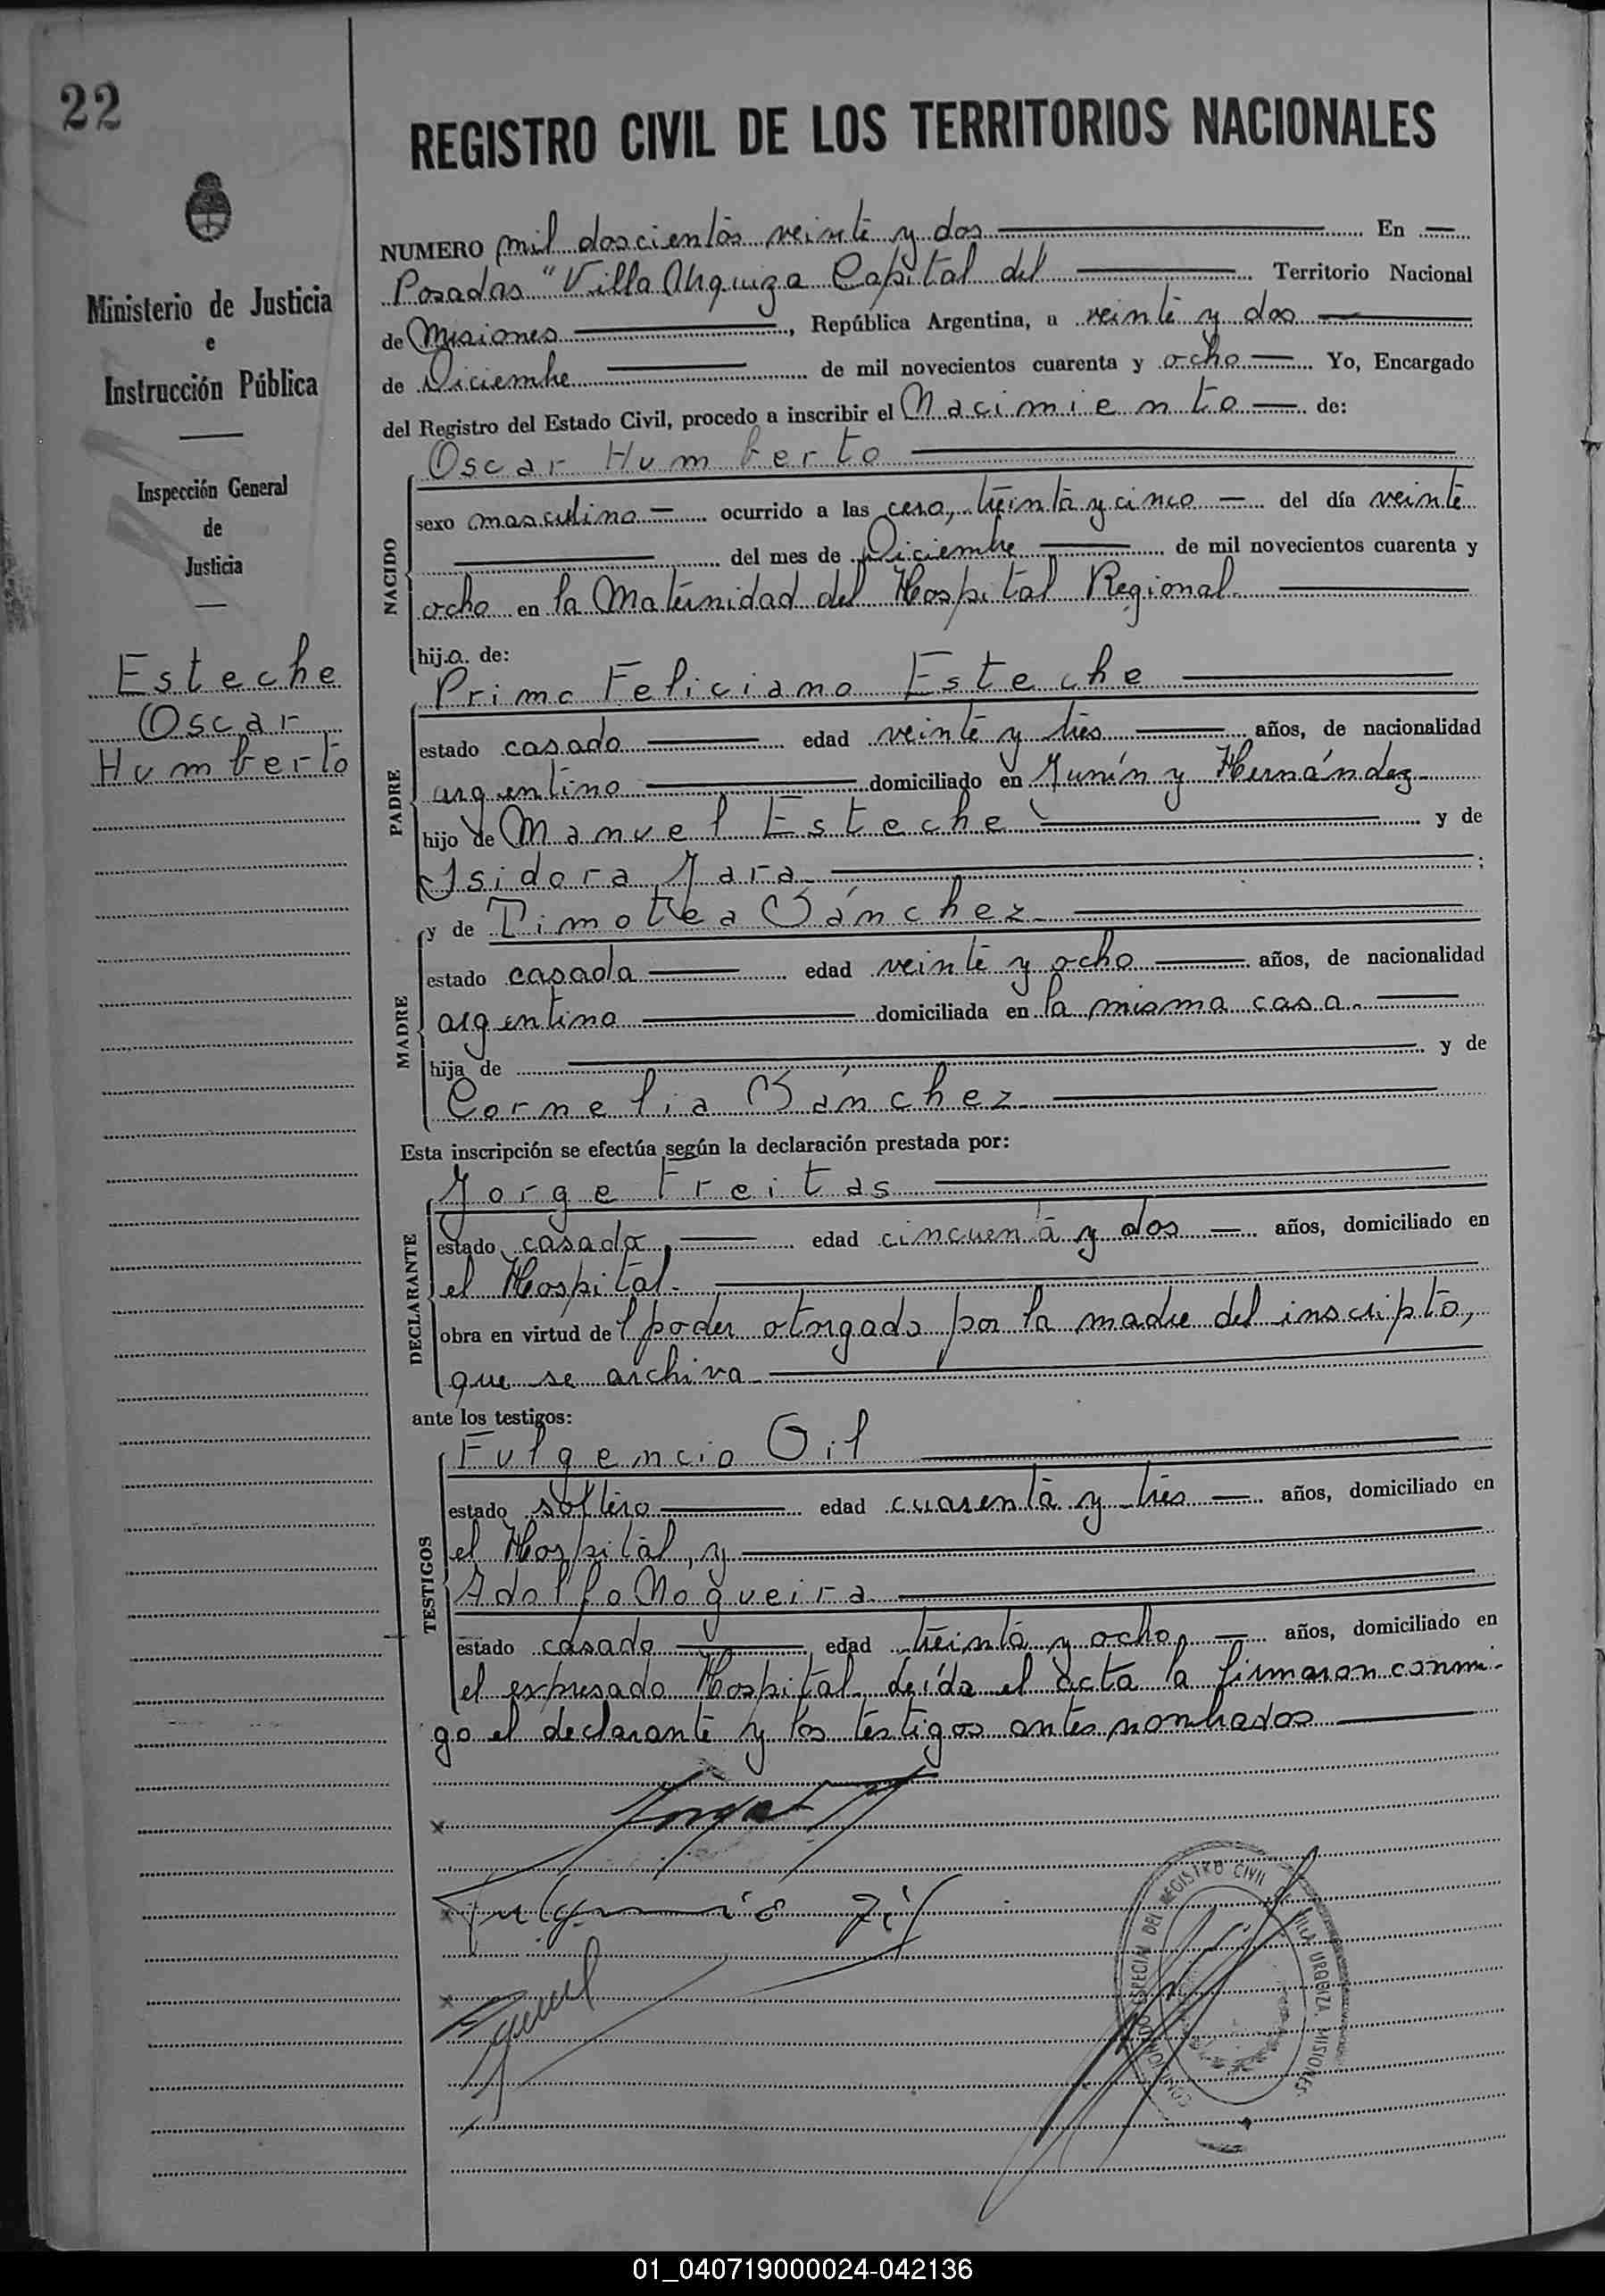 22
REGISTRO CIVIL DE LOS TERRITORIOS NACIONALES
Ministerio de Justicia
e
Instrucción Pública
Inspección General
de
Justicia
Esteche
Oscar
Humberto
NUMERO mil doscientos veinte y dos En
Posadas "Villa Urquiza Capital del Territorio Nacional
de Misiones, República Argentina, a veinte y dos
de Diciembre de mil novecientos cuarenta y ocho Yo, Encargado
del Registro del Estado Civil, procedo a inscribir el Nacimiento de:
Oscar Humberto
NACIDO
sexo masculino ocurrido a las cero, treinta y cinco del día veinte
del mes de Diciembre de mil novecientos cuarenta y
ocho en la Maternidad del Hospital Regional
hijo de:
Primo Feliciano Esteche
PADRE
estado casado edad veinte y tres años, de nacionalidad
argentino domiciliado en Junín y Hernández
hijo de Manuel Esteche y de
Isidora Jara ;
MADRE
y de Timotea Sánchez
estado casada edad veinte y ocho años, de nacionalidad
argentina domiciliada en la misma casa.
hija de y de
Cornelia Sánchez
Esta inscripción se efectúa según la declaración prestada por:
Jorge Freitas
DECLARANTE
estado casado, edad cincuenta y dos años, domiciliado en
el Hospital.
obra en virtud del poder otorgado por la madre del inscripto,
que se archiva
ante los testigos:
Fulgencio Gil
TESTIGOS
estado soltero edad cuarenta y tres años, domiciliado en
el Hospital, y
Adolfo Nogueira
estado casado edad treinta y ocho, años, domiciliado en
el expresado Hospital. Leída el acta la firmaron conmi-
go el declarante y los testigos antes nombrados
Fulgencio Gil
ESPECIAL DEL REGISTRO CIVIL VILLA URQUIZA MISIONES
01_040719000024-042136